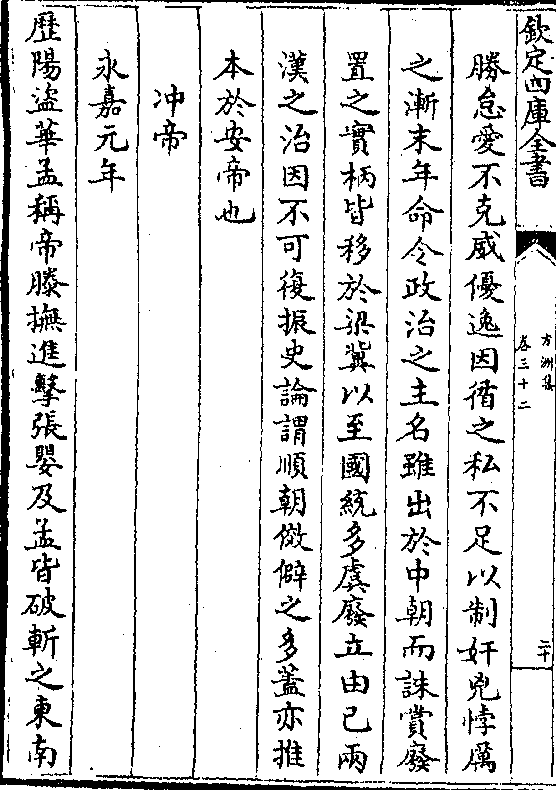 欽定四庫全書
方洲集
卷三十二
二十
勝怠愛不克威優逸因循之私不足以制奸兇悖厲
之漸末年命令政治之主名雖出於中朝而誅賞廢
置之實柄皆移於梁冀以至國統多虞廢立由己兩
漢之治因不可復振史論謂順朝傚僻之多蓋亦推
本於安帝也
冲帝
永嘉元年
歴陽盜華孟稱帝滕撫進擊張嬰及孟皆破斬之東南